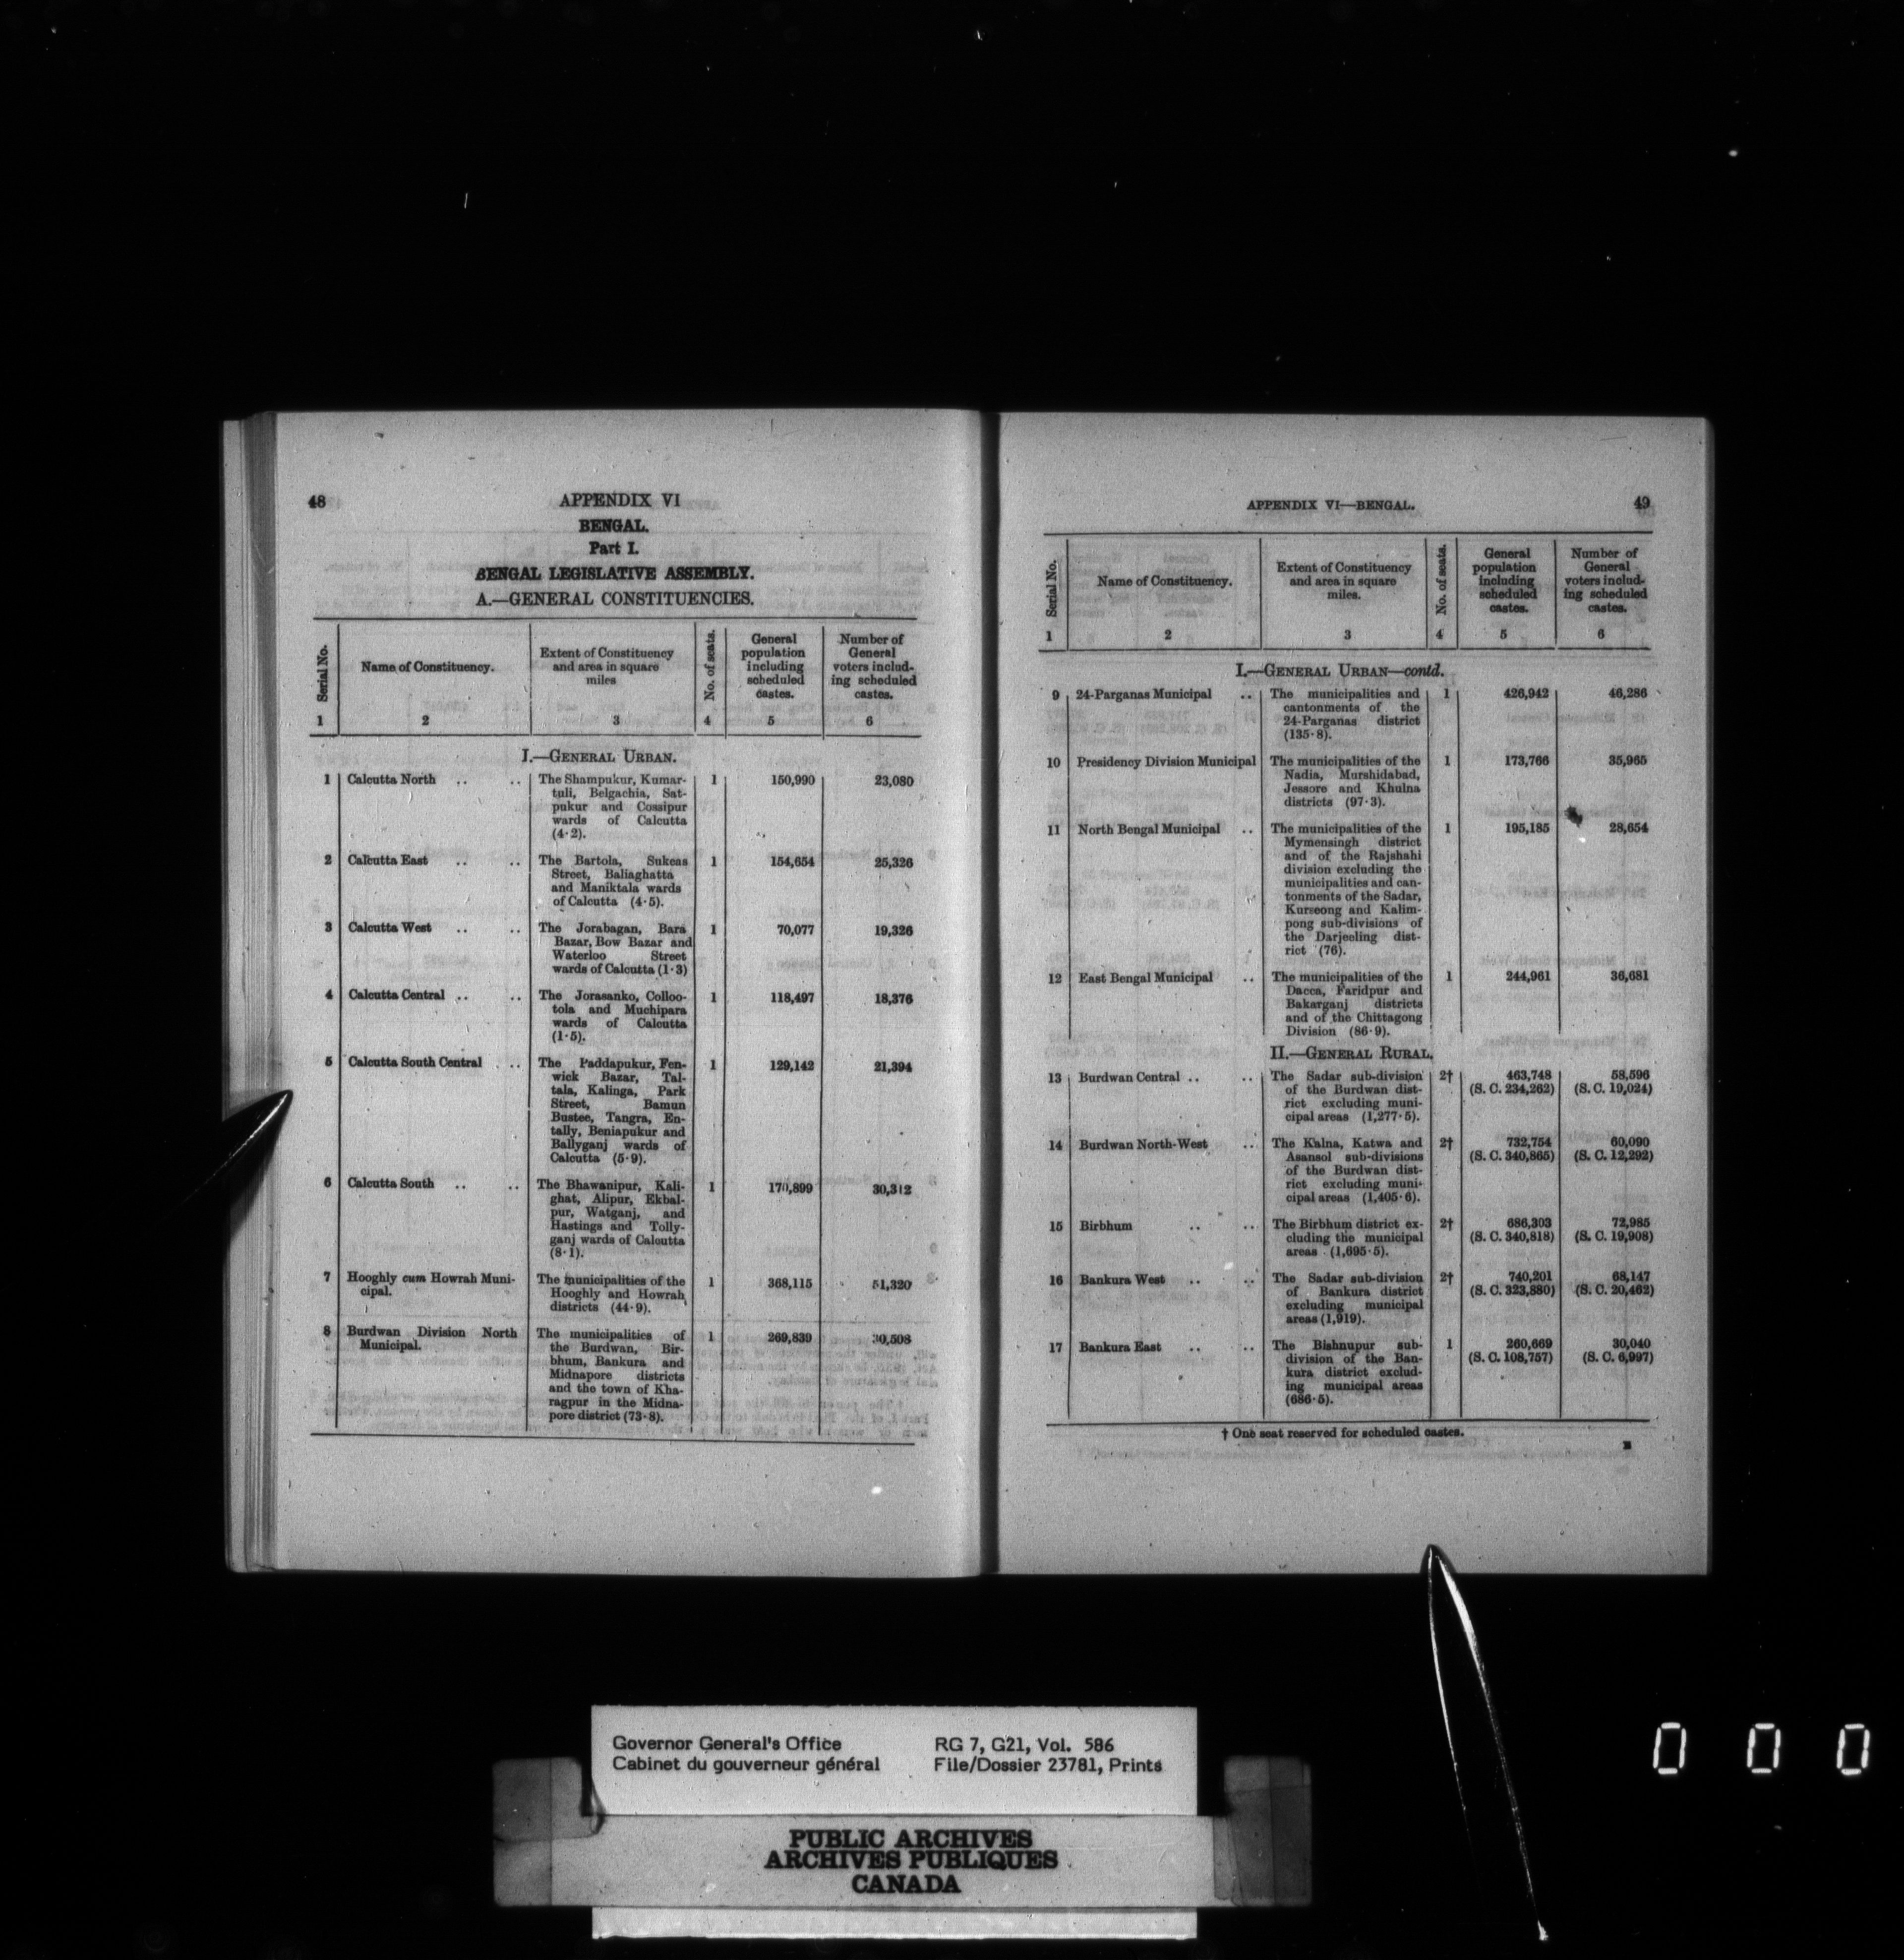 48
APPENDIX VI
BENGAL.
Part I.
BENGAL LEGISLATIVE ASSEMBLY.
A.—GENERAL CONSTITUENCIES.
Serial No. | Name of Constituency. | Extent of Constituency and area in square miles | No. of seats. | General population including scheduled castes. | Number of General voters including scheduled castes.
1 2 3 4 5 6
I.—GENERAL URBAN.
1 Calcutta North .. .. The Shampukur, Kumar- 1 150,990 23,080
tuli, Belgachia, Sat-
pukur and Cossipur
wards of Calcutta
(4·2).
2 Calcutta East .. .. The Bartola, Sukeas 1 154,654 25,326
Street, Baliaghatta
and Maniktala wards
of Calcutta (4·5).
3 Calcutta West .. .. The Jorabagan, Bara 1 70,077 19,326
Bazar, Bow Bazar and
Waterloo Street
wards of Calcutta (1·3)
4 Calcutta Central .. .. The Jorasanko, Colloo- 1 118,497 18,376
tola and Muchipara
wards of Calcutta
(1·5).
5 Calcutta South Central .. The Paddapukur, Fen- 1 129,142 21,394
wick Bazar, Tal-
tala, Kalinga, Park
Street, Bamun
Bustee, Tangra, En-
tally, Beniapukur and
Ballyganj wards of
Calcutta (5·9).
6 Calcutta South .. .. The Bhawanipur, Kali- 1 170,899 30,312
ghat, Alipur, Ekbal-
pur, Watganj, and
Hastings and Tolly-
ganj wards of Calcutta
(8·1).
7 Hooghly cum Howrah Muni- The municipalities of the 1 368,115 51,320
cipal. Hooghly and Howrah
districts (44·9).
8 Burdwan Division North The municipalities of 1 269,839 30,508
Municipal. the Burdwan, Bir-
bhum, Bankura and
Midnapore districts
and the town of Kha-
ragpur in the Midna-
pore district (73·8).
APPENDIX VI—BENGAL. 49
Serial No. | Name of Constituency. | Extent of Constituency and area in square miles. | No. of seats. | General population including scheduled castes. | Number of General voters including scheduled castes.
1 2 3 4 5 6
I.—GENERAL URBAN—contd.
9 24-Parganas Municipal .. The municipalities and 1 426,942 46,286
cantonments of the
24-Parganas district
(135·8).
10 Presidency Division Municipal The municipalities of the 1 173,766 35,965
Nadia, Murshidabad,
Jessore and Khulna
districts (97·3).
11 North Bengal Municipal .. The municipalities of the 1 195,185 28,654
Mymensingh district
and of the Rajshahi
division excluding the
municipalities and can-
tonments of the Sadar,
Kurseong and Kalim-
pong sub-divisions of
the Darjeeling dist-
rict (76).
12 East Bengal Municipal .. The municipalities of the 1 244,961 36,681
Dacca, Faridpur and
Bakarganj districts
and of the Chittagong
Division (86·9).
II.—GENERAL RURAL.
13 Burdwan Central .. .. The Sadar sub-division 2† 463,748 58,596
of the Burdwan dist- (S. C. 234,262) (S. C. 19,024)
rict excluding muni-
cipal areas (1,277·5).
14 Burdwan North-West .. The Kalna, Katwa and 2† 732,754 60,090
Asansol sub-divisions (S. C. 340,865) (S. C. 12,292)
of the Burdwan dist-
rict excluding muni-
cipal areas (1,405·6).
15 Birbhum .. .. The Birbhum district ex- 2† 686,303 72,985
cluding the municipal (S. C. 340,818) (S. C. 19,908)
areas (1,695·5).
16 Bankura West .. .. The Sadar sub-division 2† 740,201 68,147
of Bankura district (S. C. 323,880) (S. C. 20,462)
excluding municipal
areas (1,919).
17 Bankura East .. .. The Bishnupur sub- 1 260,669 30,040
division of the Ban- (S. C. 108,757) (S. C. 6,997)
kura district exclud-
ing municipal areas
(686·5).
† One seat reserved for scheduled castes.
Governor General's Office RG 7, G21, Vol. 586
Cabinet du gouverneur général File/Dossier 23781, Prints
PUBLIC ARCHIVES
ARCHIVES PUBLIQUES
CANADA
0 0 0